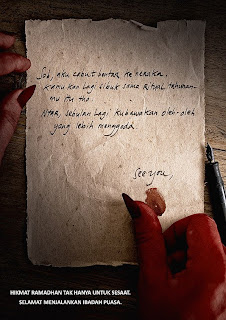 Sob, aku cabut bentar ke neraka.
Kamu kan lagi sibuk sama Ritual tahunan-
mu itu tho.
Ntar, sebulan lagi kubawakan oleh-oleh
yang lebih menggoda.
See you,
HIKMAT RAMADHAN TAK HANYA UNTUK SESAAT.
SELAMAT MENJALANKAN IBADAH PUASA.